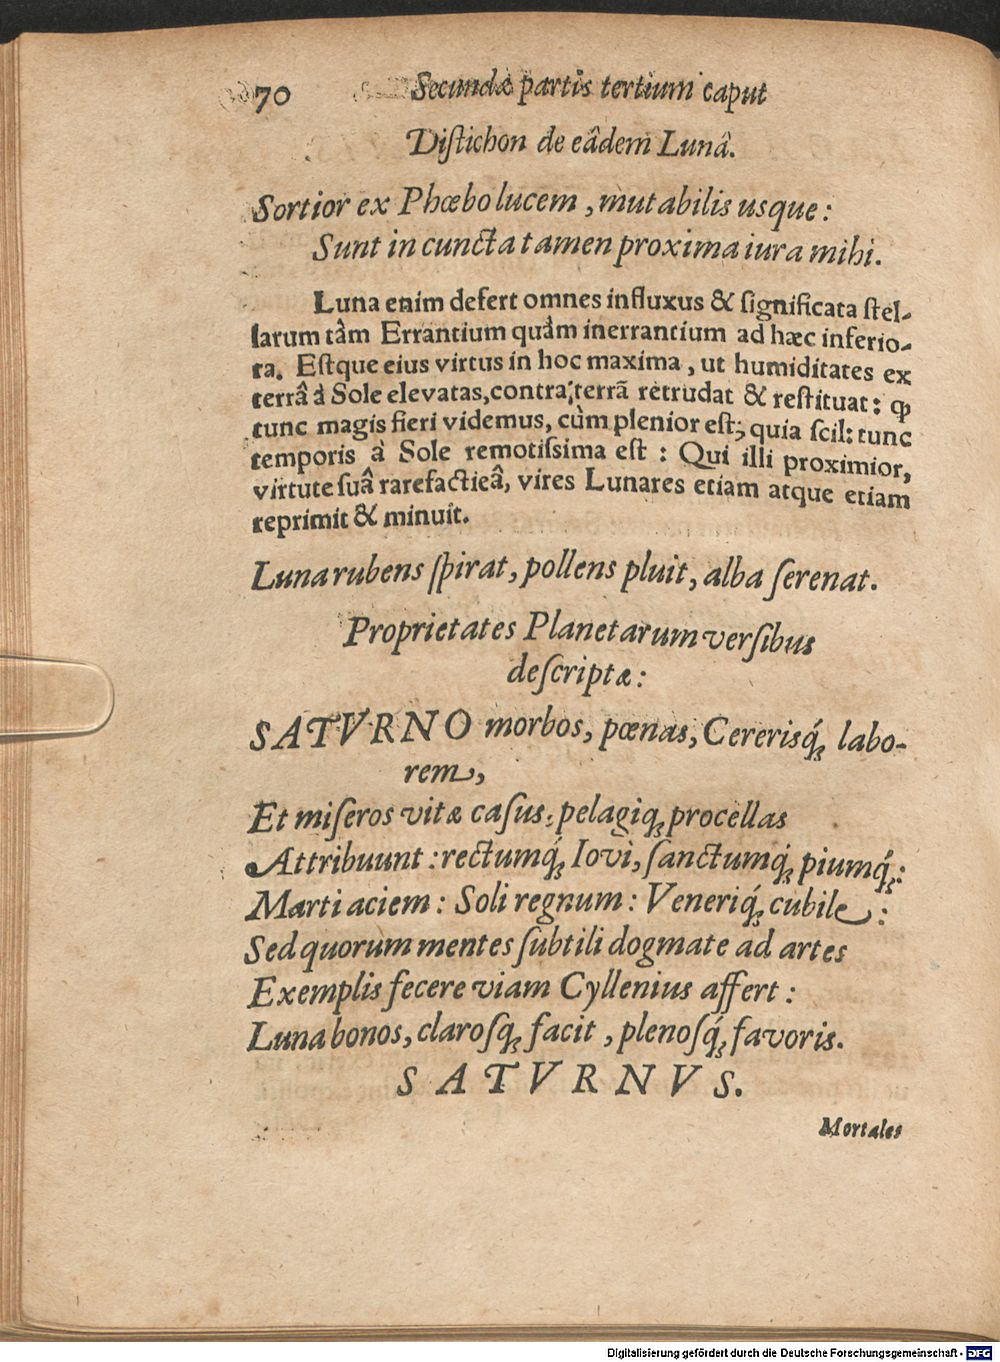 70 Secundæ partis tertium caput
Distichon de eâdem Lunâ.
Sortior ex Phœbo lucem, mutabilis usque:
Sunt in cuncta tamen proxima iura mihi.
Luna enim defert omnes influxus & significata stel-
larum tàm Errantium quàm inerrantium ad hæc inferio-
ra. Estque eius virtus in hoc maxima, ut humiditates ex
terrâ à Sole elevatas, contra terrã retrudat & restituat: ꝙ
tunc magis fieri videmus, cùm plenior est; quia scil: tunc
temporis à Sole remotissima est: Qui illi proximior,
virtute suâ rarefactieâ, vires Lunares etiam atque etiam
reprimit & minuit.
Luna rubens spirat, pollens pluit, alba serenat.
Proprietates Planetarum versibus
descriptæ:
SATVRNO morbos, pœnas, Cererisq́; labo-
rem,
Et miseros vitæ casus, pelagiq; procellas
Attribuunt: rectumq́; Iovi, sanctumq́; piumq́;:
Marti aciem: Soli regnum: Veneriq́; cubile:
Sed quorum mentes subtili dogmate ad artes
Exemplis fecere viam Cyllenius affert:
Luna bonos, clarosq; facit, plenosq́; favoris.
SATVRNVS.
Mortales
Digitalisierung gefördert durch die Deutsche Forschungsgemeinschaft - DFG